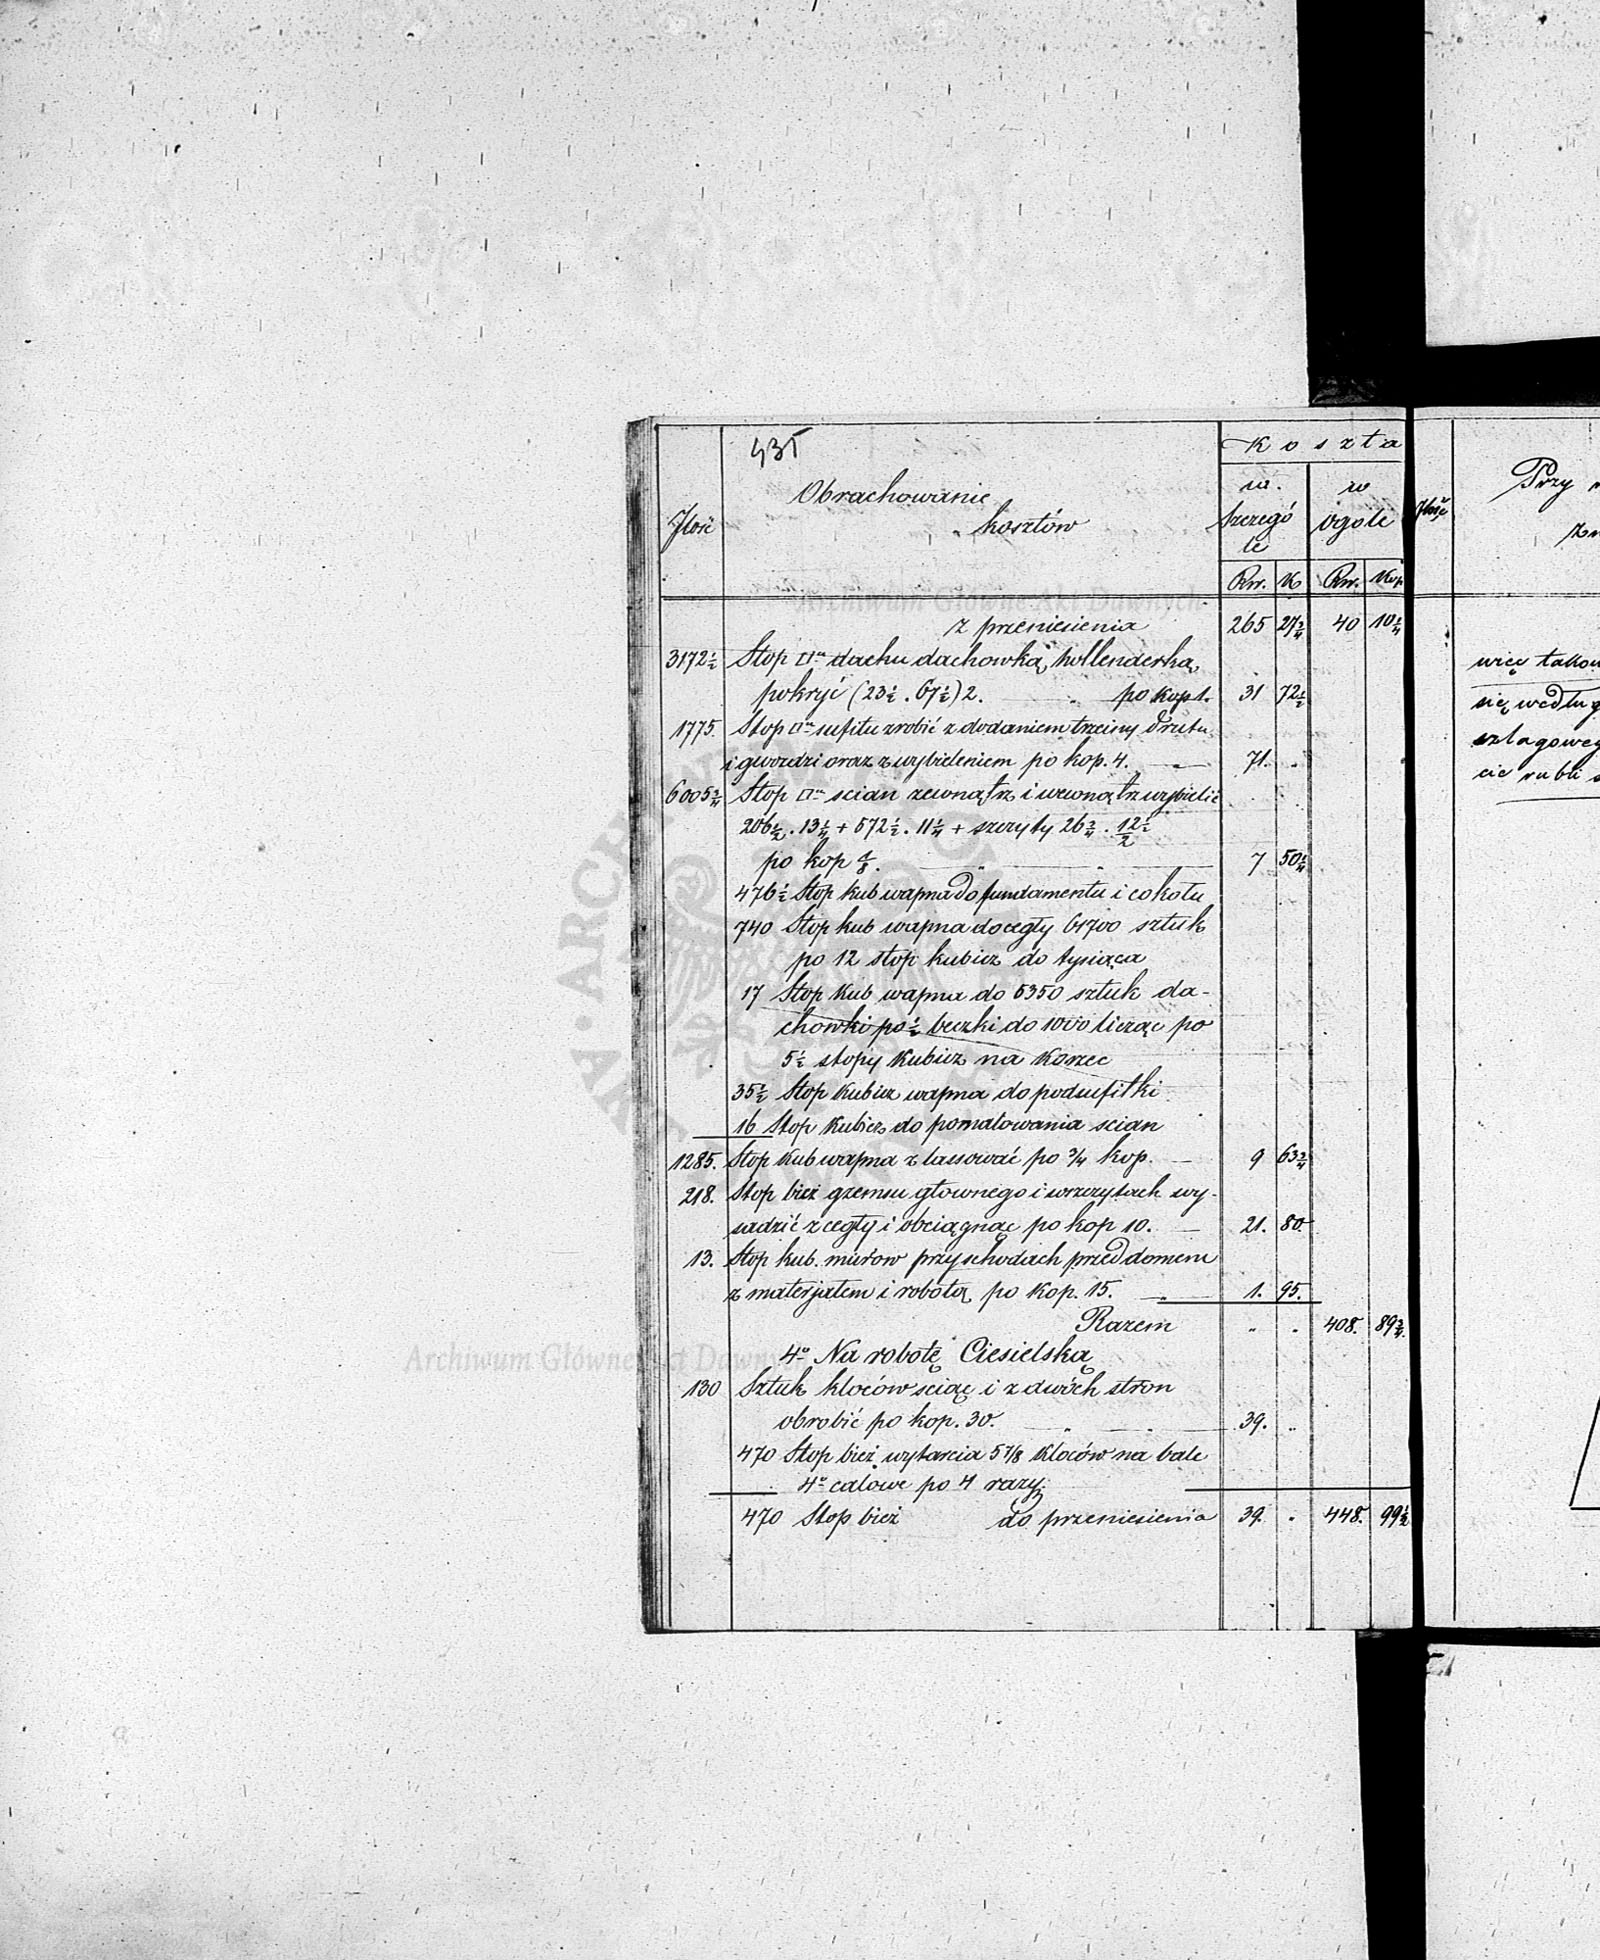 435
Koszta
Ilość
Obrachowanie
kosztów
w
Szczegó
le
w
ogóle
Rsr. K
Rsr. Kop
z przeniesienia 265 27 3/4 40 10 1/4
3172 1/2 Stop □ dachu dachowką hollenderką
pokryć (23 1/2 . 67 1/2) 2. po kop 1. 31 72 1/2
1775. Stop □ sufitu zrobić z dodaniem trzciny drutu
i gwozdzi oraz z wybieleniem po kop. 4. 71. "
6005 3/4 Stop □ scian zewnątrz i wewnątrz wybielić
206 1/2 . 13 1/4 + 572 1/2 . 11 1/4 + szczyty 26 3/4 . 12 1/2 / 2
po kop 1/8. 7 50 1/4
476 1/2 Stop kub wapna do fundamentu i cokołu
740 Stop kub wapna do cegły 61700 sztuk
po 12 stop kubicz do tysiąca
17 Stop Kub wapna do 6350 sztuk da-
chowki po 1/2 beczki do 1000 licząc po
5 1/2 stopy Kubicz na Korzec
35 1/2 Stop Kubicz wapna do podsufitki
16 Stop Kubicz do pomalowania scian
1285. Stop Kub wapna zlassować po 3/4 kop. 9 63 3/4
218. Stop bież gzemsu głownego i w szczytach wy-
sadzić z cegły i obciągnąc po kop 10. 21. 80
13. Stop kub. murow przy schodach przed domem
z materjałem i robotą po Kop. 15. 1. 95.
Razem " " 408. 89 3/4.
4o Na robotę Ciesielską
130 Sztuk kloców sciąć i z dwóch stron
obrobić po kop. 30. 39. "
470 Stop bież wytarcia 5 7/8 Kloców na bale
4o calowe po 4 razy
470 Stop bież do przeniesienia 39. " 448. 99 1/2
Ilość
Przy
więc takow
się według
szlagoweg
cie rubli s
Archiwum Główne Akt Dawnych
Archiwum Główne Akt Dawnych